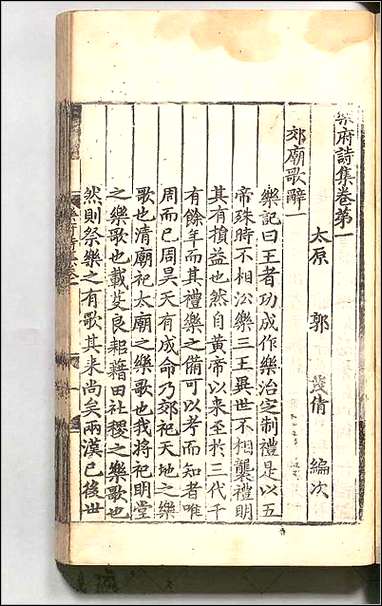 樂府詩集卷第一
太原 郭 茂倩 編次
郊廟歌辭一
樂記曰王者功成作樂治定制禮是以五
帝殊時不相沿樂三王異世不相襲禮明
其有損益也然自黃帝以來至於三代千
有餘年而其禮樂之備可以考而知者唯
周而已周昊天有成命乃郊祀天地之樂
歌也清廟祀太廟之樂歌也我將祀明堂
之樂歌也載芟良耜藉田社稷之樂歌也
然則祭樂之有歌其来尚矣兩漢已後世